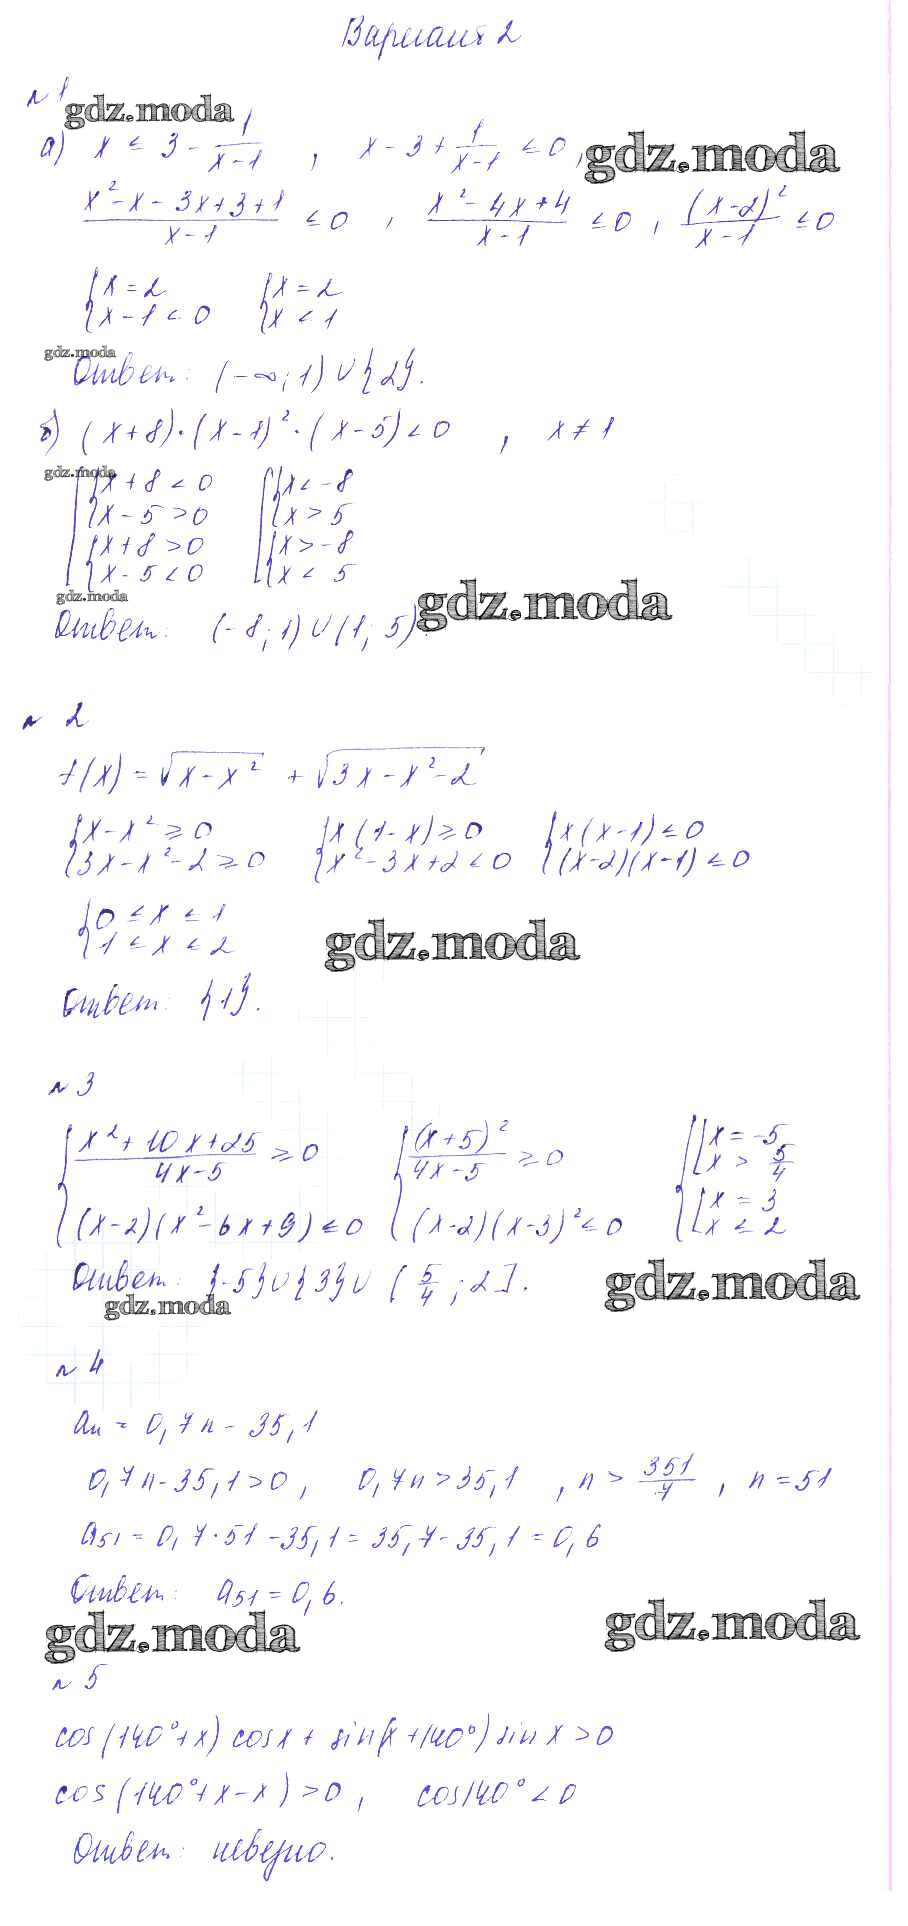 Вариант 2
№ 1
gdz.moda
а) x ≤ 3 - 1/(x-1) , x - 3 + 1/(x-1) ≤ 0 ,
gdz.moda
(x² - x - 3x + 3 + 1)/(x-1) ≤ 0 , (x² - 4x + 4)/(x-1) ≤ 0 , (x-2)²/(x-1) ≤ 0
{ x = 2 { x = 2
{ x - 1 < 0 { x < 1
gdz.moda
Ответ: (-∞; 1) ∪ {2}.
б) (x+8)·(x-1)²·(x-5) < 0 , x ≠ 1
gdz.moda
[ { x + 8 < 0 [ { x < -8
{ x - 5 > 0 { x > 5
{ x + 8 > 0 { x > -8
{ x - 5 < 0 { x < 5
gdz.moda
gdz.moda
Ответ: (-8; 1) ∪ (1; 5)
№ 2
f(x) = √(x - x²) + √(3x - x² - 2)
{ x - x² ≥ 0 { x(1-x) ≥ 0 { x(x-1) ≤ 0
{ 3x - x² - 2 ≥ 0 { x² - 3x + 2 < 0 { (x-2)(x-1) ≤ 0
{ 0 ≤ x ≤ 1
{ 1 ≤ x ≤ 2
gdz.moda
Ответ: {1}.
№ 3
{ (x² + 10x + 25)/(4x-5) ≥ 0 { (x+5)²/(4x-5) ≥ 0 { [ x = -5
[ x > 5/4
{ (x-2)(x² - 6x + 9) ≤ 0 { (x-2)(x-3)² ≤ 0 { [ x = 3
[ x ≤ 2
Ответ: {-5} ∪ {3} ∪ (5/4; 2].
gdz.moda
gdz.moda
№ 4
aₙ = 0,7n - 35,1
0,7n - 35,1 > 0 , 0,7n > 35,1 , n > 351/7 , n = 51
a₅₁ = 0,7·51 - 35,1 = 35,7 - 35,1 = 0,6
Ответ: a₅₁ = 0,6.
gdz.moda
gdz.moda
№ 5
cos(140°+x) cosx + sin(x+140°) sinx > 0
cos(140°+x-x) > 0 , cos140° < 0
Ответ: неверно.